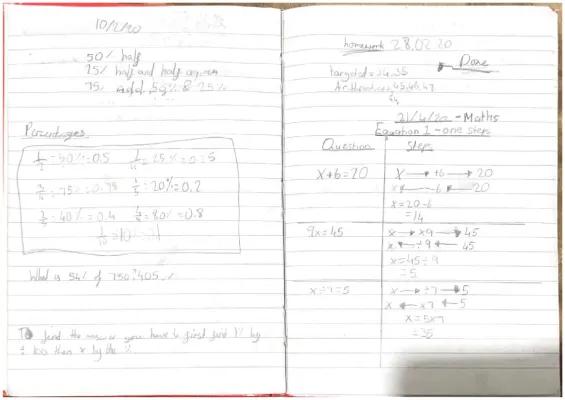 10/2/20
50% half
25% half and half again
75% add 50% & 25%
Percentages
1/2 = 50% = 0.5 1/4 = 25% = 0.25
3/4 = 75% = 0.75 1/5 = 20% = 0.2
2/5 = 40% = 0.4 4/5 = 80% = 0.8
1/10 = 10% =
What is 54% of 750? 405
To find the you have to first find 1% by
÷ 100 then x by the %
homework 28.02.20
Done
targeted = 34,35
Arithmetic = 45,46,47
21/4/20 - Maths
Equation 1 - one step
Question Step
x+6=20 x → +6 → 20
x ← -6 ← 20
x = 20-6
= 14
9x = 45 x → x9 → 45
x ← ÷9 ← 45
x = 45 ÷ 9
= 5
x ÷ 7 = 5 x → ÷7 → 5
x ← x7 ← 5
x = 5x7
= 35